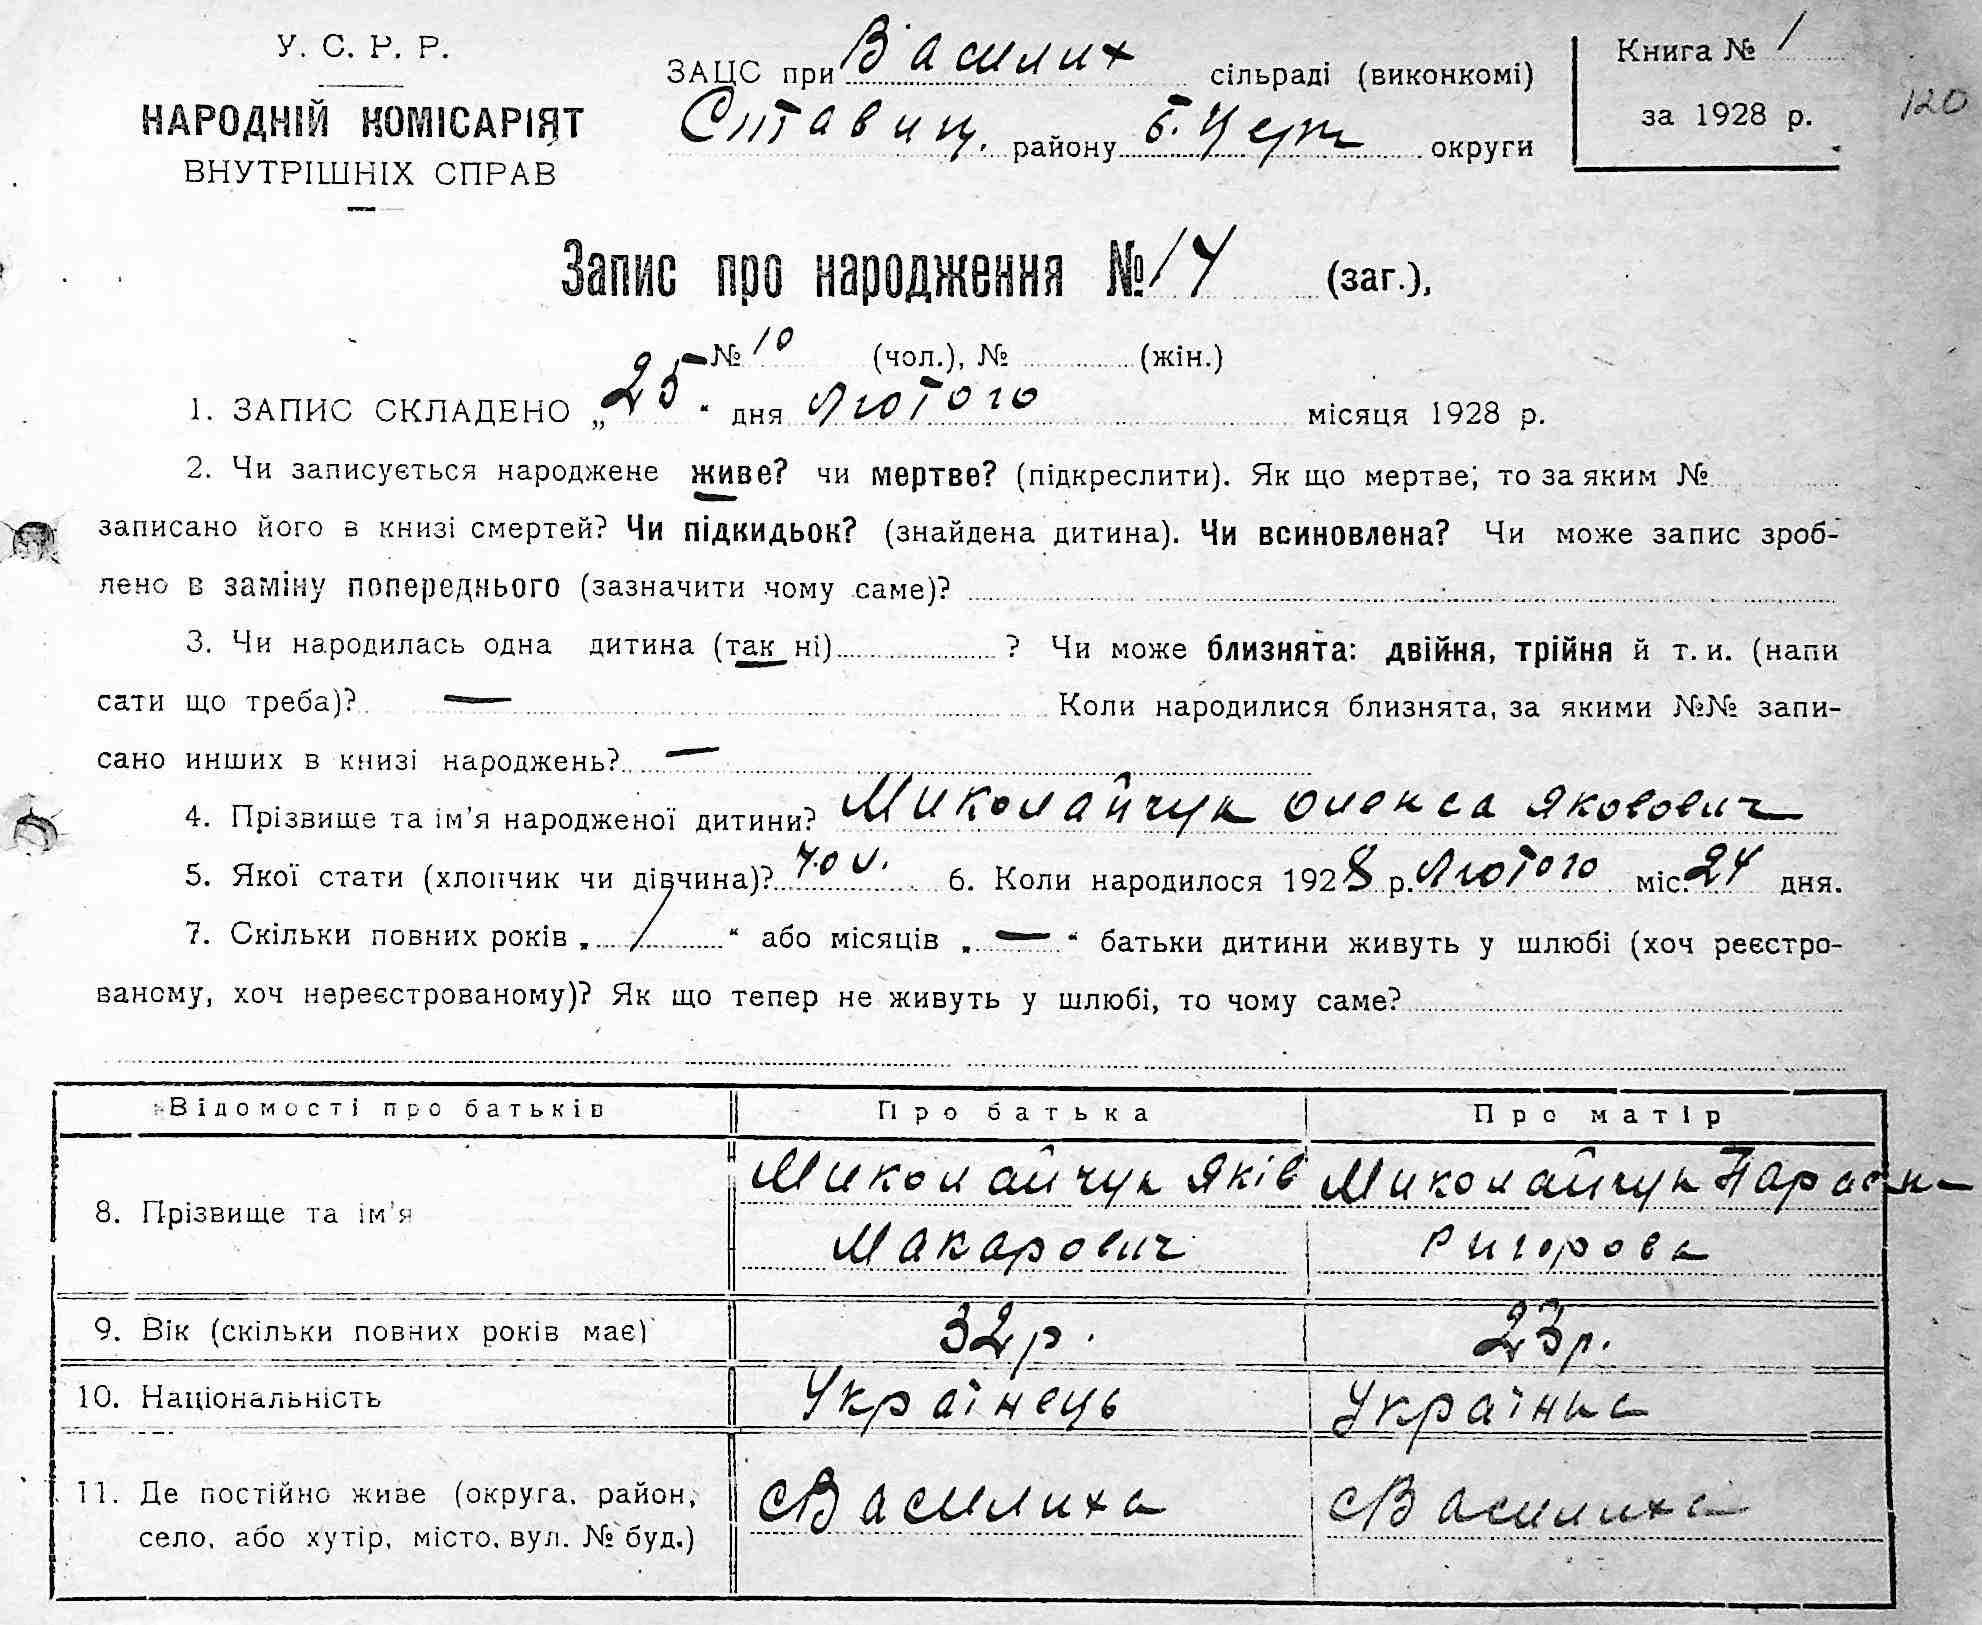 У. С. Р. Р.
НАРОДНІЙ КОМІСАРІЯТ
ВНУТРІШНІХ СПРАВ
ЗАЦС при Василих сільраді (виконкомі)
Ставищ. району Б. Церк округи
Книга № 1
за 1928 р.
120
Запис про народження № 14 (заг.),
№ 10 (чол.), № (жін.)
1. ЗАПИС СКЛАДЕНО „25“ дня Лютого місяця 1928 р.
2. Чи записується народжене живе? чи мертве? (підкреслити). Як що мертве; то за яким №
записано його в книзі смертей? Чи підкидьок? (знайдена дитина). Чи всиновлена? Чи може запис зроб-
лено в заміну попереднього (зазначити чому саме)?
3. Чи народилась одна дитина (так ні) ? Чи може близнята: двійня, трійня й т. и. (напи
сати що треба)? — Коли народилися близнята, за якими №№ запи-
сано инших в книзі народжень? —
4. Прізвище та ім'я народженої дитини? Миколайчук Олекса Якович
5. Якої стати (хлопчик чи дівчина)? чол. 6. Коли народилося 1928 р. Лютого міс. 24 дня.
7. Скільки повних років „ 1 “ або місяців „ — “ батьки дитини живуть у шлюбі (хоч реєстро-
ваному, хоч нереєстрованому)? Як що тепер не живуть у шлюбі, то чому саме?
Відомості про батьків Про батька Про матір
8. Прізвище та ім'я Миколайчук Яків Миколайчук Параска
Макарович Ригорова
9. Вік (скільки повних років має) 32 р. 23 р.
10. Національність Українець Українка
11. Де постійно живе (округа, район, село, або хутір, місто, вул. № буд.) с Василиха с Василиха